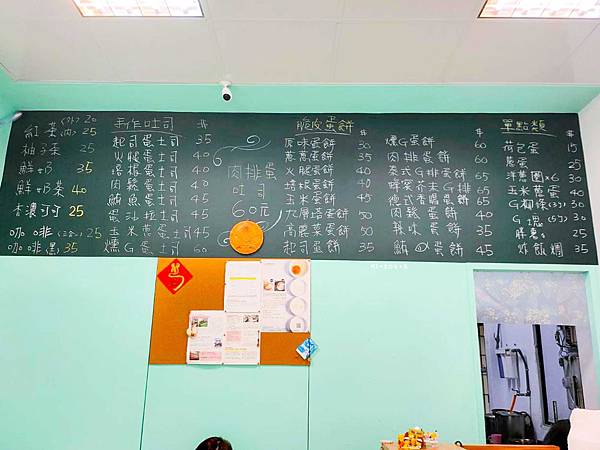 紅茶(外) 20
(內) 25
柚子茶 25
鮮奶 35
鮮奶茶 40
香濃可可 25
咖啡(2合1) 25
咖啡(黑) 35
手作吐司 #
起司蛋土司 35
火腿蛋土司 40
培根蛋土司 40
肉鬆蛋土司 40
鮪魚蛋土司 45
蛋沙拉土司 45
玉米蛋土司 40
燻G蛋土司 60
肉排蛋
吐司
60元
脆皮蛋餅 #
原味蛋餅 30
蔥蔥蛋餅 35
火腿蛋餅 35
培根蛋餅 35
玉米蛋餅 35
九層塔蛋餅 50
高麗菜蛋餅 50
起司蛋餅 35
#
燻G蛋餅 60
肉排蛋餅 60
泰式G排蛋餅 65
蜂蜜芥末G排 65
德式香腸蛋餅 65
肉鬆蛋餅 40
辣味蛋餅 35
鮪魚蛋餅 45
單點類 #
荷包蛋 15
蔥蛋 25
洋蔥圈x6 30
玉米蔥蛋 40
G柳條 30
G塊 30
25
炸飯糰 35